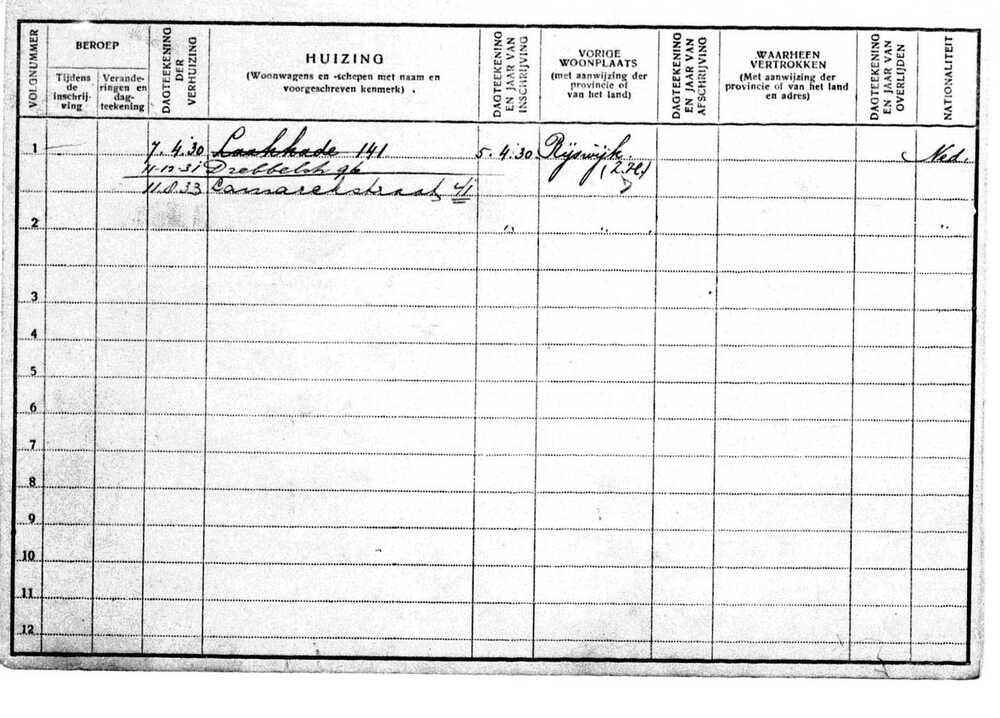 VOLGNUMMER
BEROEP
Tijdens de inschrijving
Veranderingen en dagteekening
DAGTEEKENING DER VERHUIZING
HUIZING
(Woonwagens en -schepen met naam en
voorgeschreven kenmerk) .
DAGTEEKENING EN JAAR VAN INSCHRIJVING
VORIGE
WOONPLAATS
(met aanwijzing der
provincie of
van het land)
DAGTEEKENING EN JAAR VAN AFSCHRIJVING
WAARHEEN
VERTROKKEN
(Met aanwijzing der
provincie of van het land
en adres)
DAGTEEKENING EN JAAR VAN OVERLIJDEN
NATIONALITEIT
1 7.4.30 Laakkade 141 5.4.30 Rijswijk Ned.
11-12-31 Drebbelstr 96 (Z.H.)
11.8.33 Lamarckstraat 41
2 " " "
3
4
5
6
7
8
9
10
11
12